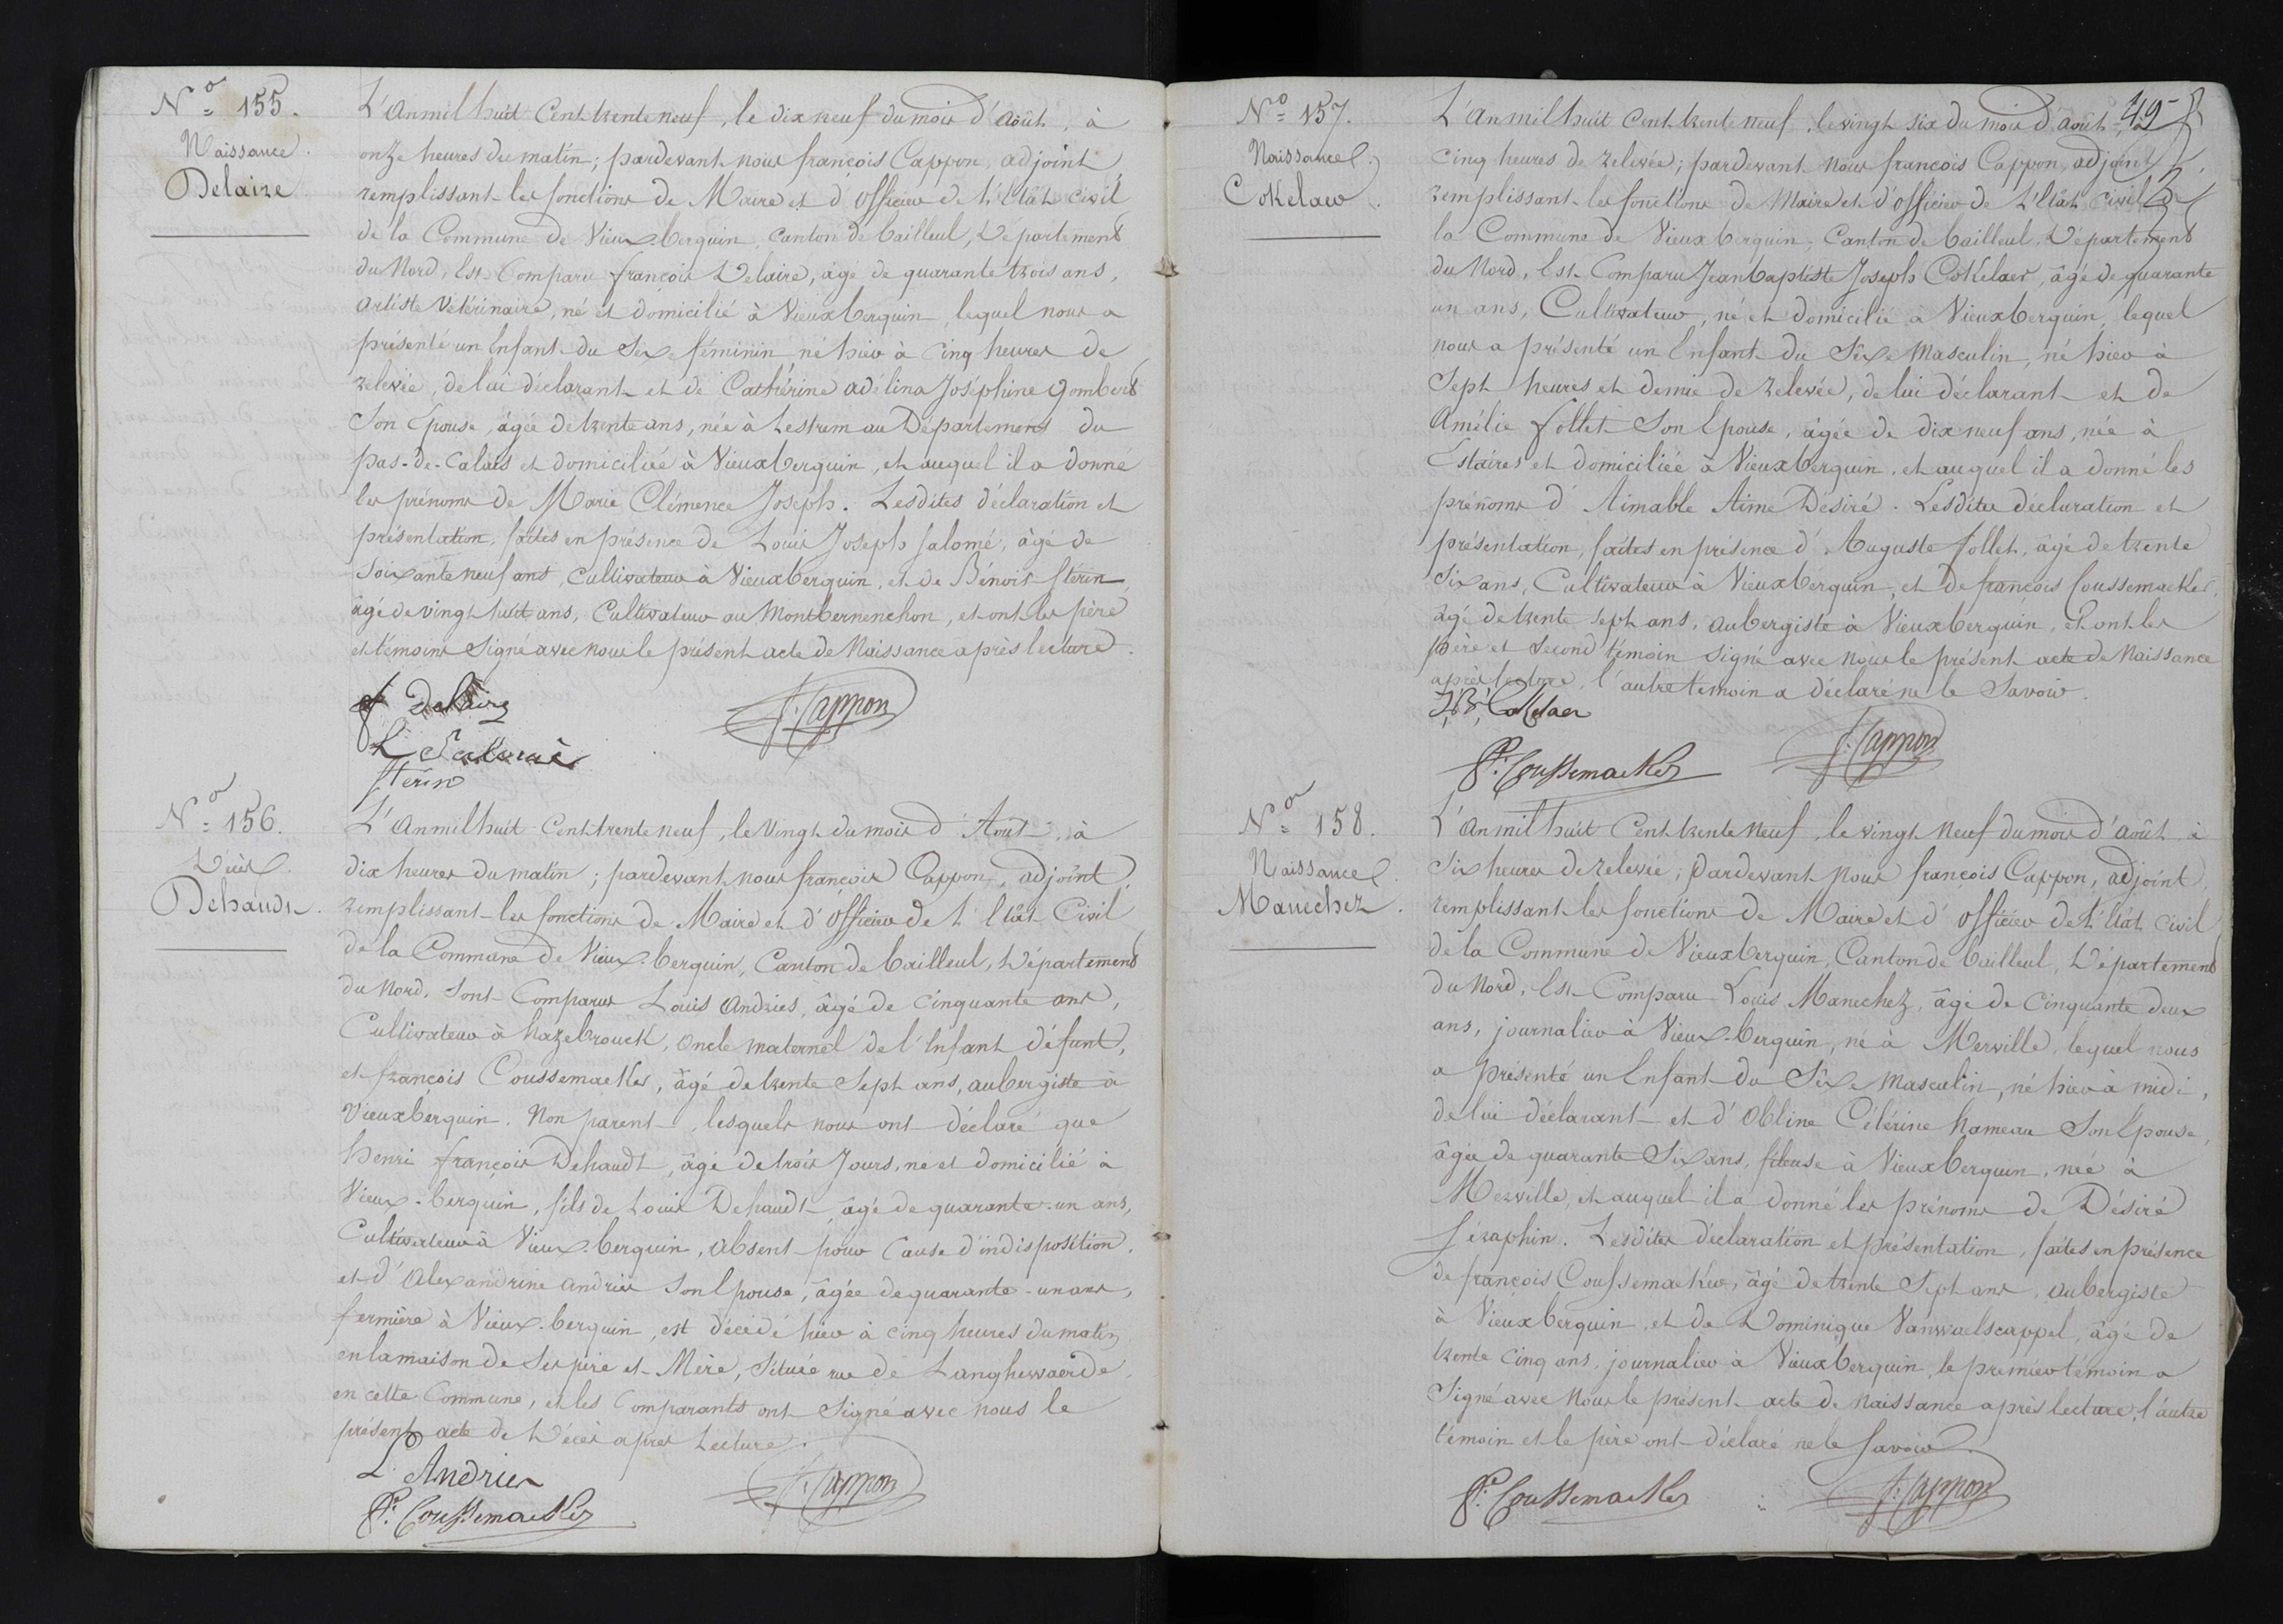 N.o 155.
Naissance.
Delaire.
L'An mil huit Cent trente neuf, le dix neuf du mois d'Août, à
onze heures du matin; pardevant nous françois Cappon, adjoint
remplissant les fonctions de Maire et d'officier de l'Etat civil
de la Commune de Vieux-berquin, canton de bailleul, Département
du Nord, Est Comparu françois Delaire, âgé de quarante trois ans,
artiste vétérinaire, né et domicilié à Vieuxberquin, lequel nous a
présenté un Enfant du Sexe féminin né hier à Cinq heures de
relevée, de lui déclarant et de Cathérine adélina Joséphine Gombert
Son Epouse, âgée de trente ans, née à Lestrem au Département du
pas-de-calais et domiciliée à Vieuxberquin, et auquel il a donné
les prénoms de Marie Clémence Joseph. Lesdites déclaration et
présentation, faites en présence de Louis Joseph Salomé, âgé de
Soixante neuf ans, cultivateur à Vieuxberquin, et de Bénoit Stérin
âgé de vingt huit ans, Cultivateur au Montbernenchon, et ont les père
et témoins Signé avec nous le présent acte de Naissance après lecture.
f Delaire
f. Cappon
L Salomé
Stérin
N.o 156.
Décès.
Dehaudt.
L'An mil huit Cent trente neuf, le Vingt du mois d'Août, à
dix heures du matin; pardevant nous françois Cappon, adjoint
remplissant les fonctions de Maire et d'officier de l'Etat Civil
de la Commune de Vieux-berquin, Canton de bailleul, Département
du Nord, Sont Comparus Louis Andries, âgé de Cinquante ans,
Cultivateur à hazebrouck, Oncle maternel de l'Enfant défunt,
et françois Coussemacker, âgé de trente Sept ans, aubergiste à
Vieuxberquin. Non parent, lesquels nous ont déclaré que
henri françois Dehaudt, âgé de trois Jours, né et domicilié à
Vieux-berquin, fils de Louis Dehaudt, âgé de quarante-un ans,
Cultivateur à Vieux-berquin, absent pour Cause d'indisposition,
et d'Alexandrine andries Son Epouse, âgée de quarante-un ans,
fermière à Vieux-berquin, est décédé hier à cinq heures du matin,
en la maison de Ses père et Mère, Située rue de Langhewaerde,
en cette Commune, et les Comparants ont Signé avec nous le
présent acte de Décès après Lecture.
L Andries
f. Cappon
f.s Coussemacker
49
N.o 157.
Naissance.
Cokelaer.
L'An mil huit Cent trente neuf, le vingt six du mois d'août, à
cinq heures de relevée; pardevant nous françois Cappon, adjoint
remplissant les fonctions de Maire et d'officier de l'Etat civil de
la Commune de Vieuxberquin, Canton de bailleul, Département
du Nord, Est Comparu Jean baptiste Joseph Cokelaer, âgé de quarante
un ans, Cultivateur, né et domicilié à Vieuxberquin, lequel
nous a présenté un Enfant du Sexe Masculin, né hier à
Sept heures et demie de relevée, de lui déclarant et de
Amélie follet Son Epouse, âgée de dix neuf ans, née à
Estaires et domiciliée à Vieuxberquin, et auquel il a donné les
prénoms d'Aimable Aimé Désiré. Lesdites déclaration et
présentation, faites en présence d'Auguste follet, âgé de trente
Six ans, Cultivateur à Vieuxberquin, et de françois Coussemacker,
âgé de trente Sept ans, aubergiste à Vieuxberquin, et ont les
père et Second témoin Signé avec nous le présent acte de Naissance
après lecture, l'autre témoin a déclaré ne le Savoir.
J.B. Cokelaer
f. Cappon
f.s Coussemacker
N.o 158.
Naissance.
Manechez.
L'An mil huit Cent trente neuf, le vingt Neuf du mois d'août, à
Six heures de relevée; pardevant Nous françois Cappon, adjoint
remplissant les fonctions de Maire et d'officier de l'Etat Civil
de la Commune de Vieuxberquin, Canton de bailleul, Département
du Nord, Est Comparu Louis Manechez, âgé de Cinquante deux
ans, journalier à Vieux-berquin, né à Merville, lequel nous
a présenté un Enfant du Sexe Masculin, né hier à midi,
de lui déclarant et d'Obline Célérine hameau Son Epouse,
âgée de quarante Six ans, fileuse à Vieuxberquin, née à
Merville, et auquel il a donné les prénoms de Désiré
Séraphin. Lesdites déclaration et présentation, faites en présence
de françois Coussemacker, âgé de trente Sept ans, aubergiste
à Vieuxberquin, et de Dominique Vanwaelscappel, âgé de
trente cinq ans, journalier à Vieuxberquin, le premier témoin a
Signé avec Nous le présent acte de naissance après lecture, l'autre
témoin et le père ont déclaré ne le Savoir.
f.s Coussemacker
f. Cappon